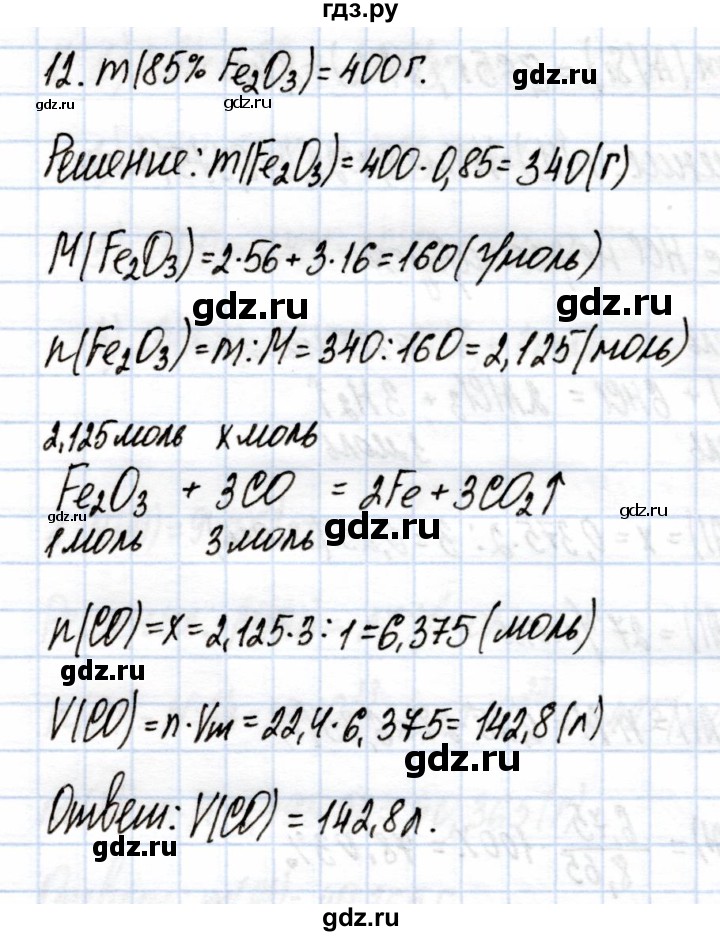 гдз.ру
12. m(85% Fe₂O₃) = 400г.
gdz.ru
gdz.ru
gdz.ru
Решение: m(Fe₂O₃) = 400·0,85 = 340(г)
M(Fe₂O₃) = 2·56 + 3·16 = 160(г/моль)
gdz.ru
gdz.ru
n(Fe₂O₃) = m:M = 340:160 = 2,125(моль)
2,125моль x моль
Fe₂O₃ + 3CO = 2Fe + 3CO₂↑
gdz.ru
gdz.ru
gdz.ru
1моль 3моль
n(CO) = x = 2,125·3:1 = 6,375(моль)
gdz.ru
V(CO) = n·Vm = 22,4·6,375 = 142,8(л)
gdz.ru
Ответ: V(CO) = 142,8л.
gdz.ru
gdz.ru